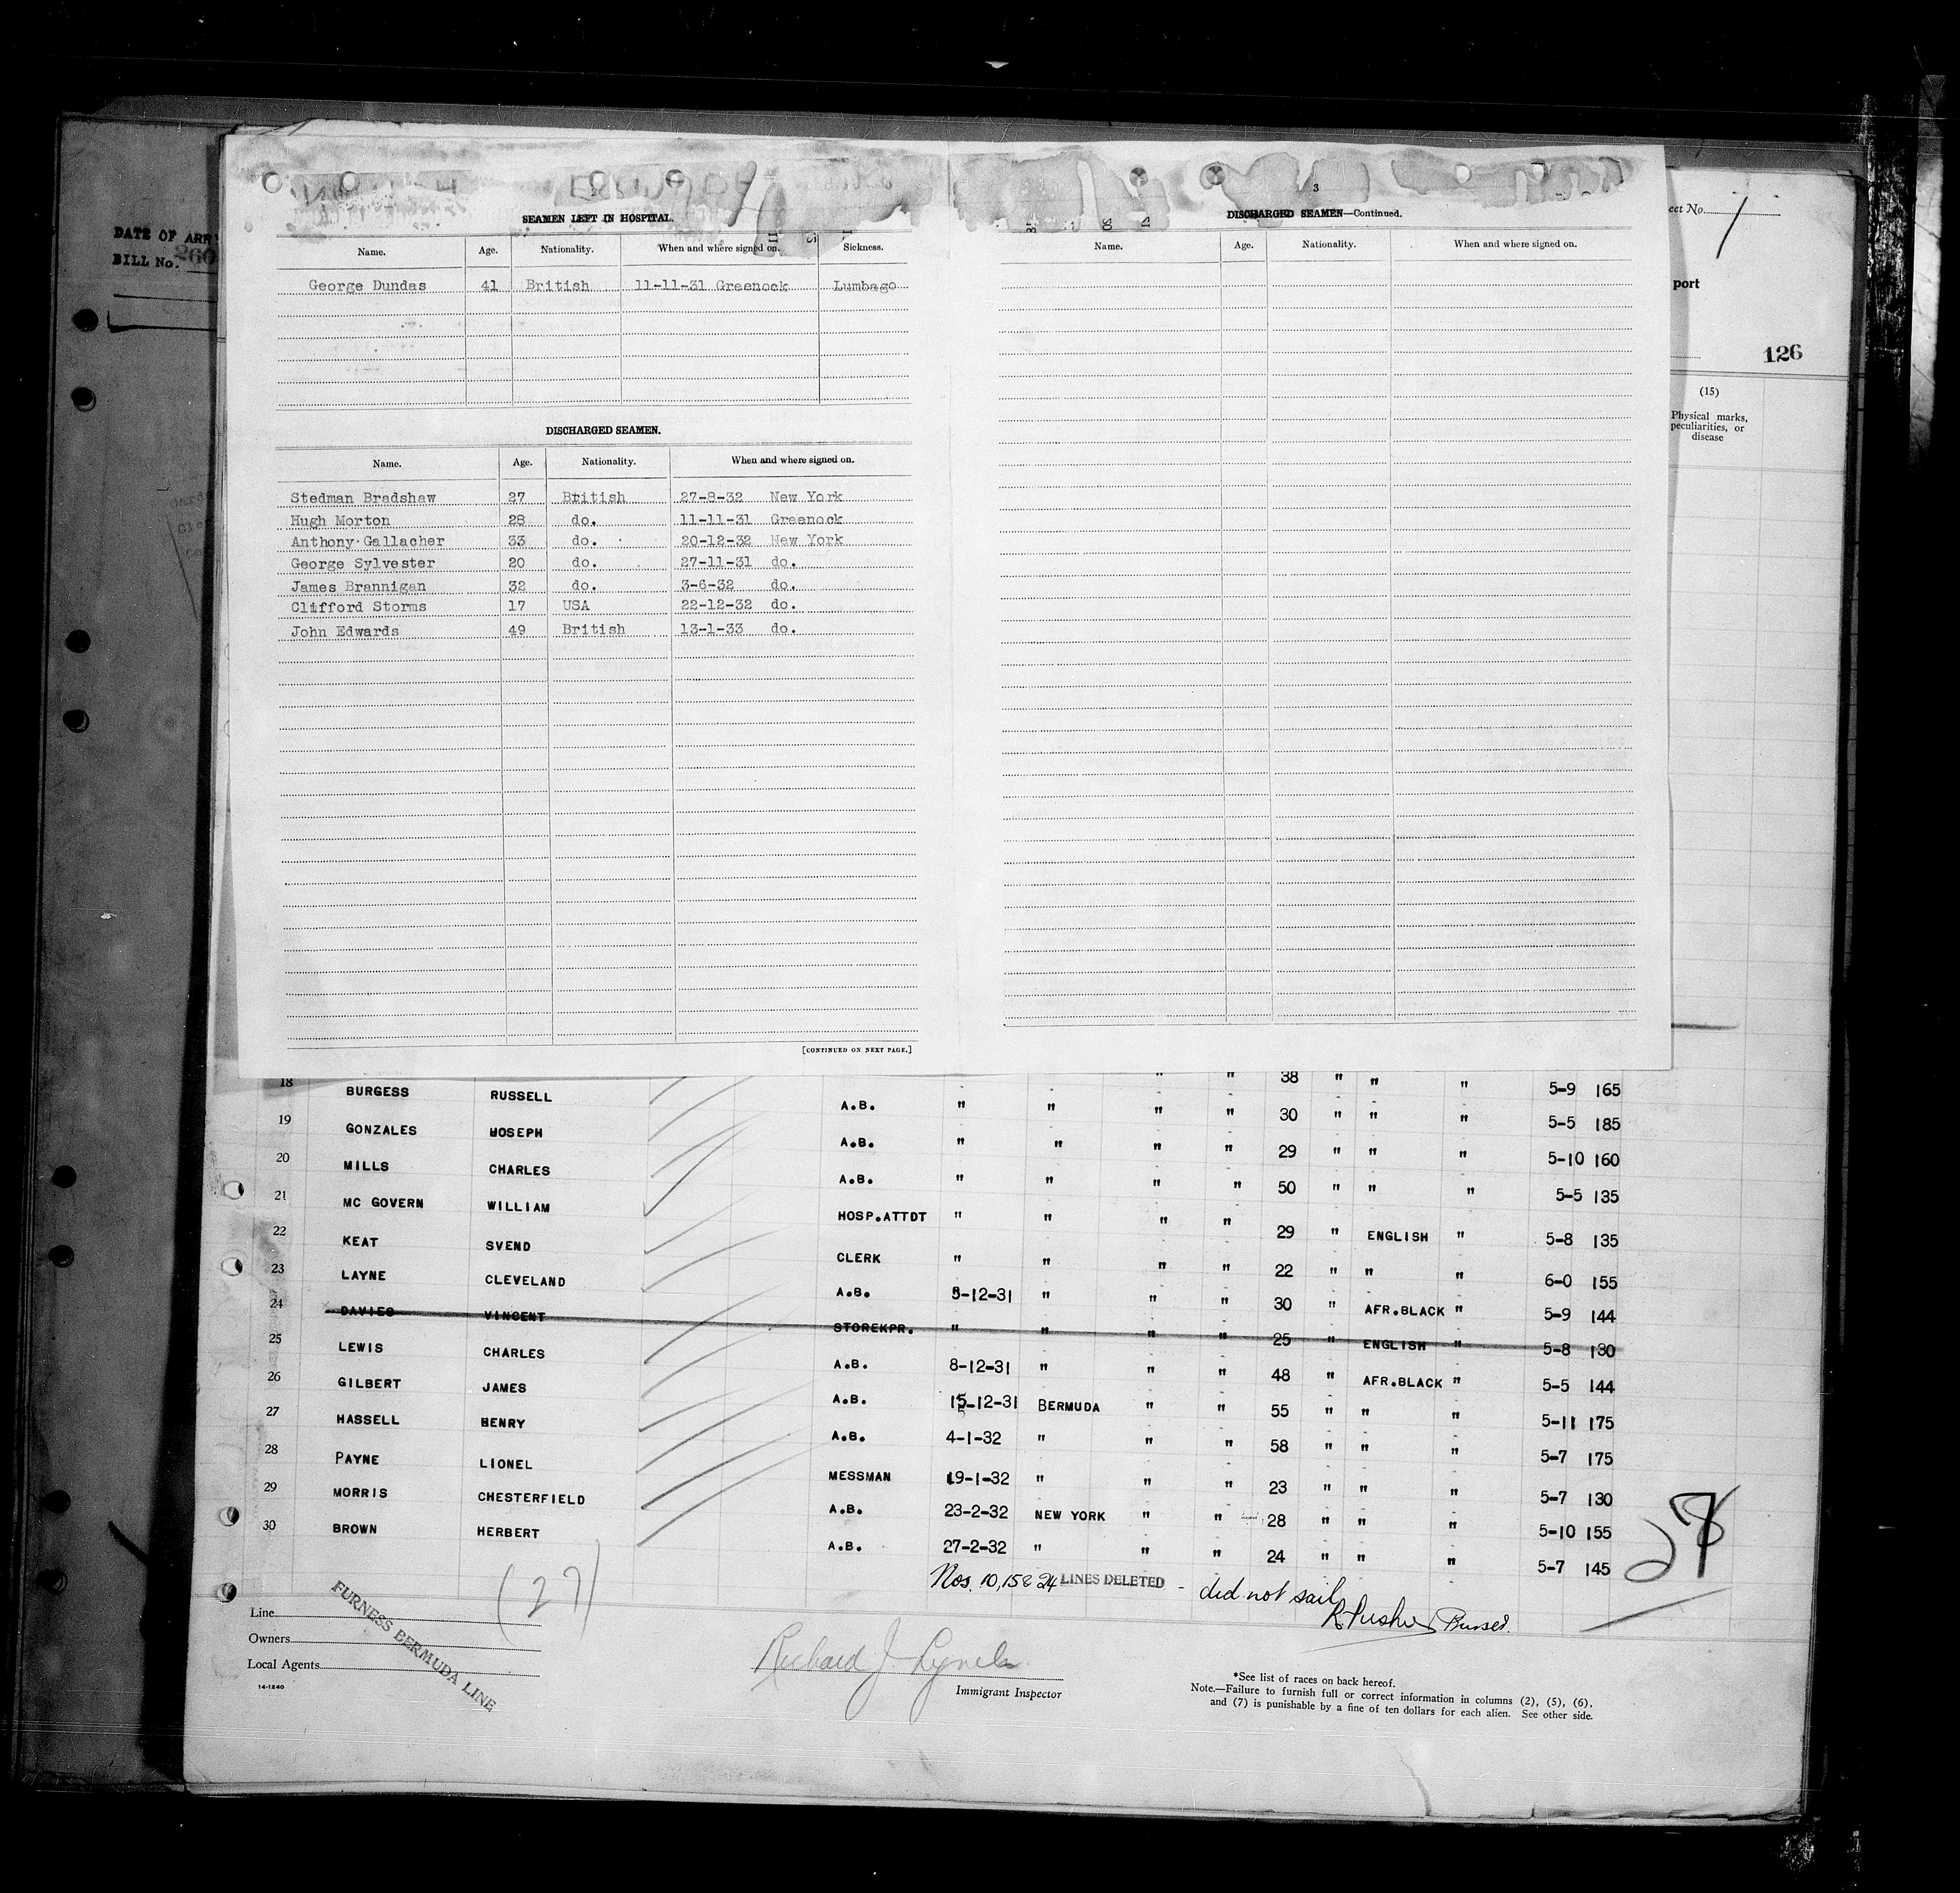 DATE OF ARR
BILL No. 260
eet No. 1
port
126
(15)
Physical marks,
peculiarities, or
disease
SEAMEN LEFT IN HOSPITAL.
Name. Age. Nationality. When and where signed on. Sickness.
George Dundas 41 British 11-11-31 Greenock Lumbago
DISCHARGED SEAMEN.
Name. Age. Nationality. When and where signed on.
Stedman Bradshaw 27 British 27-8-32 New York
Hugh Morton 28 do. 11-11-31 Greenock
Anthony Gallacher 33 do. 20-12-32 New York
George Sylvester 20 do. 27-11-31 do.
James Brannigan 32 do. 3-6-32 do.
Clifford Storms 17 USA 22-12-32 do.
John Edwards 49 British 13-1-33 do.
[CONTINUED ON NEXT PAGE.]
3
DISCHARGED SEAMEN—Continued.
Name. Age. Nationality. When and where signed on.
" " 38 " " "
18 BURGESS RUSSELL A.B. " " " " 30 " " " 5-9 165
19 GONZALES HOSEPH A.B. " " " " 29 " " " 5-5 185
20 MILLS CHARLES A.B. " " " " 50 " " " 5-10 160
21 MC GOVERN WILLIAM HOSP.ATTDT " " " " 29 " ENGLISH " 5-5 135
22 KEAT SVEND CLERK " " " " 22 " " " 5-8 135
23 LAYNE CLEVELAND A.B. 5-12-31 " " " 30 " AFR.BLACK " 6-0 155
24 DAVIES VINCENT STOREKPR. " " " " 25 " ENGLISH " 5-9 144
25 LEWIS CHARLES A.B. 8-12-31 " " " 48 " AFR.BLACK " 5-8 130
26 GILBERT JAMES A.B. 15-12-31 BERMUDA " " 55 " " " 5-5 144
27 HASSELL HENRY A.B. 4-1-32 " " " 58 " " " 5-11 175
28 PAYNE LIONEL MESSMAN 19-1-32 " " " 23 " " " 5-7 175
29 MORRIS CHESTERFIELD A.B. 23-2-32 NEW YORK " " 28 " " " 5-7 130
30 BROWN HERBERT A.B. 27-2-32 " " " 24 " " " 5-10 155
5-7 145
28
(27)
Nos. 10, 15 & 24 LINES DELETED - did not sail
Purser.
Line
Owners
Local Agents
14-1240
FURNESS BERMUDA LINE
Richard J. Lynch
Immigrant Inspector
*See list of races on back hereof.
Note.—Failure to furnish full or correct information in columns (2), (5), (6),
and (7) is punishable by a fine of ten dollars for each alien. See other side.